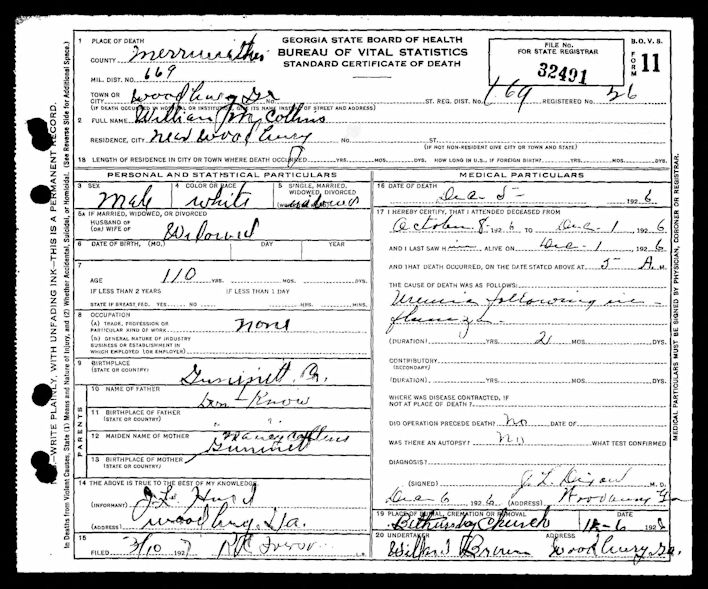 GEORGIA STATE BOARD OF HEALTH
BUREAU OF VITAL STATISTICS
STANDARD CERTIFICATE OF DEATH
FILE No.
FOR STATE REGISTRAR
32491
B. O. V. S.
FORM 11
N. B.—WRITE PLAINLY, WITH UNFADING INK—THIS IS A PERMANENT RECORD.
In Deaths from Violent Causes, State (1) Means and Nature of Injury, and (2) Whether Accidental, Suicidal, or Homicidal. (See Reverse Side for Additional Space.)
1 PLACE OF DEATH
COUNTY Merriwether
MIL. DIST. NO. 669
TOWN OR CITY Woodbury Ga ST. REG. DIST. 669 REGISTERED NO. 26
(IF DEATH OCCURRED IN HOSPITAL OR INSTITUTION, GIVE ITS NAME INSTEAD OF STREET AND ADDRESS)
2 FULL NAME William M Collins
RESIDENCE, CITY near Woodbury NO. ST.
(IF NON-RESIDENT GIVE CITY OR TOWN AND STATE)
18 LENGTH OF RESIDENCE IN CITY OR TOWN WHERE DEATH OCCURRED YRS. MOS. DYS. HOW LONG IN U.S., IF FOREIGN BIRTH? YRS. MOS. DYS.
PERSONAL AND STATISTICAL PARTICULARS
3 SEX Male
4 COLOR OR RACE white
5 SINGLE, MARRIED, WIDOWED, DIVORCED widowed
5A IF MARRIED, WIDOWED, OR DIVORCED
HUSBAND OF
(OR) WIFE OF Widowed
6 DATE OF BIRTH, (MO.) DAY YEAR
7 AGE 110 YRS. MOS. DYS.
IF LESS THAN 2 YEARS IF LESS THAN 1 DAY
STATE IF BREAST FED, YES NO HRS. MINS.
8 OCCUPATION
(A) TRADE, PROFESSION OR PARTICULAR KIND OF WORK none
(B) GENERAL NATURE OF INDUSTRY
BUSINESS OR ESTABLISHMENT IN
WHICH EMPLOYED (OR EMPLOYER)
9 BIRTHPLACE
(STATE OR COUNTRY)
PARENTS
10 NAME OF FATHER Don-Know
11 BIRTHPLACE OF FATHER " "
(STATE OR COUNTRY)
12 MAIDEN NAME OF MOTHER Collins
13 BIRTHPLACE OF MOTHER
(STATE OR COUNTRY)
14 THE ABOVE IS TRUE TO THE BEST OF MY KNOWLEDGE
(INFORMANT)
(ADDRESS) Woodbury, Ga.
15
FILED 3/10 192 L.R.
MEDICAL PARTICULARS
16 DATE OF DEATH Dec 5 1926
17 I HEREBY CERTIFY, THAT I ATTENDED DECEASED FROM
October 8 1926 TO Dec 1 1926
AND I LAST SAW H im ALIVE ON Dec 1 1926
AND THAT DEATH OCCURRED, ON THE DATE STATED ABOVE AT 5 A. M.
THE CAUSE OF DEATH WAS AS FOLLOWS:
Uremia following in-
fluenza
(DURATION) YRS. 2 MOS. DYS.
CONTRIBUTORY
(SECONDARY)
(DURATION) YRS. MOS. DYS.
WHERE WAS DISEASE CONTRACTED, IF
NOT AT PLACE OF DEATH?
DID OPERATION PRECEDE DEATH? No DATE OF
WAS THERE AN AUTOPSY? No WHAT TEST CONFIRMED
DIAGNOSIS?
(SIGNED) J. L. Dixon M. D.
Dec 6 1926 (ADDRESS) Woodbury Ga
19 PLACE OF BURIAL, CREMATION OR REMOVAL DATE
Church 12-6 192
20 UNDERTAKER ADDRESS
Woodbury, Ga.
MEDICAL PARTICULARS MUST BE SIGNED BY PHYSICIAN, CORONER OR REGISTRAR.